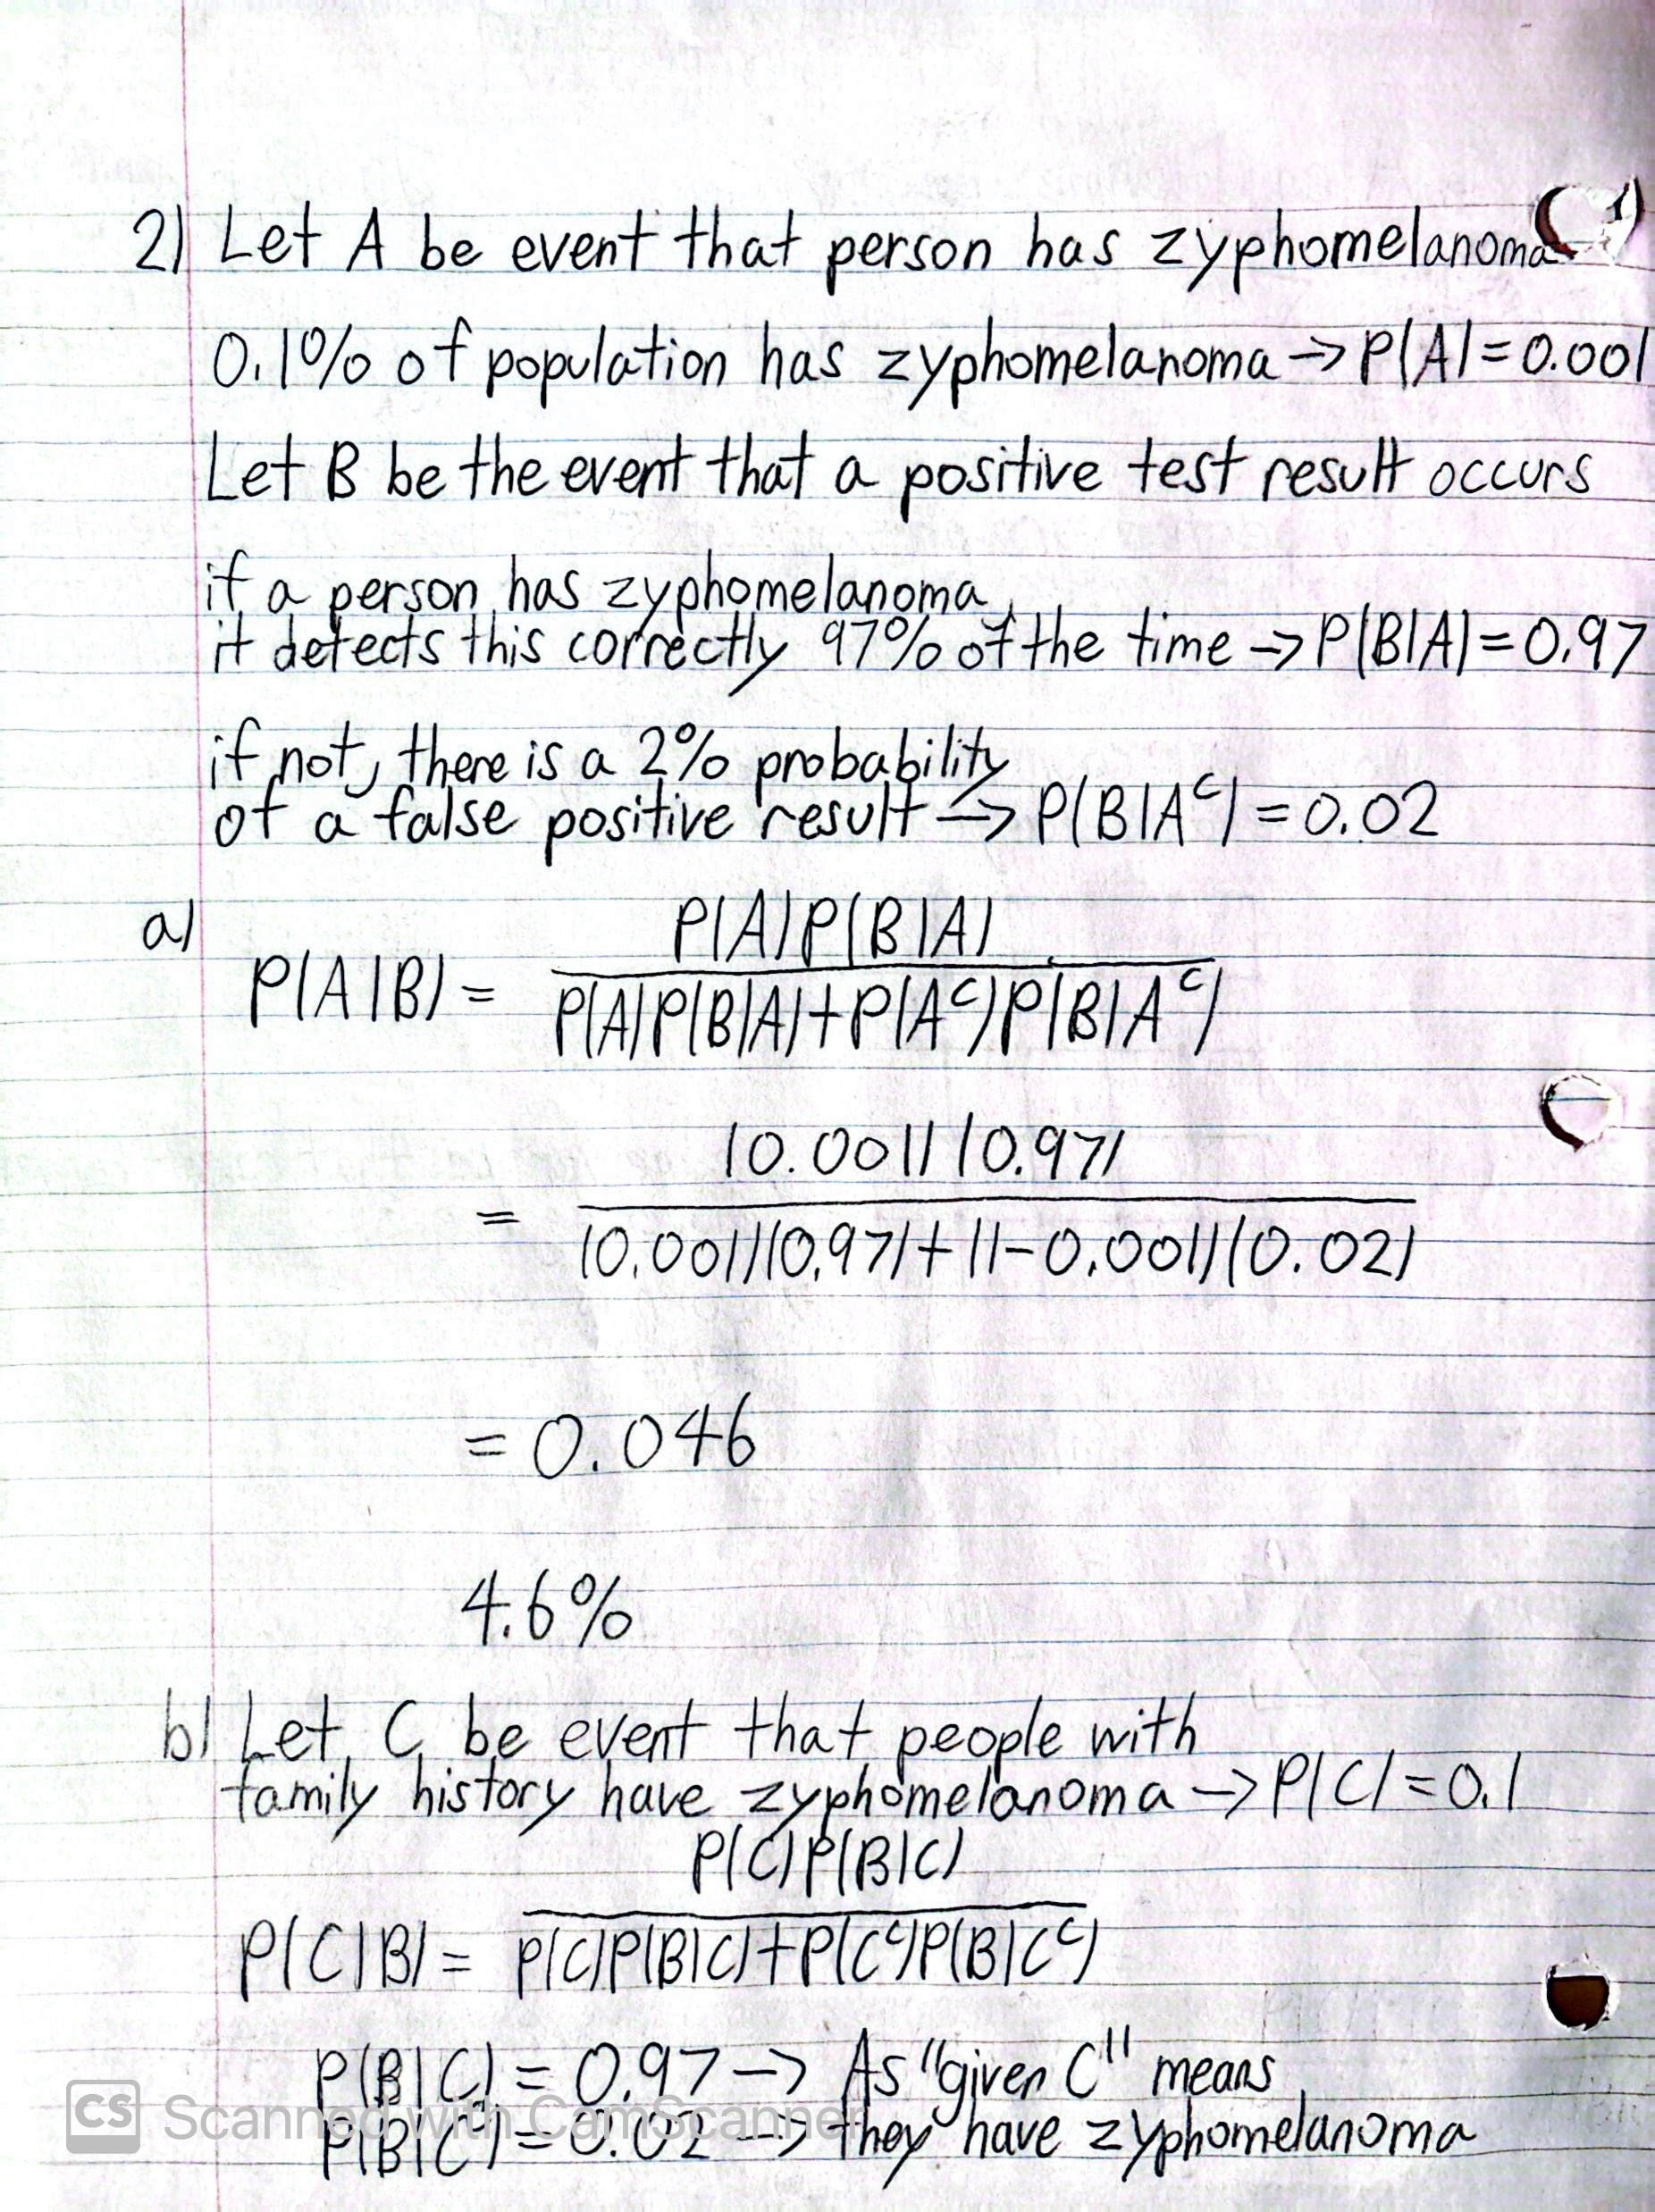 2) Let A be event that person has zyphomelanoma
0.1% of population has zyphomelanoma → P(A) = 0.001
Let B be the event that a positive test result occurs
if a person has zyphomelanoma,
it detects this correctly 97% of the time → P(B|A) = 0.97
if not, there is a 2% probability
of a false positive result → P(B|A^c) = 0.02
a)
P(A|B) = P(A)P(B|A) / P(A)P(B|A)+P(A^c)P(B|A^c)
= (0.001)(0.97) / (0.001)(0.97)+(1-0.001)(0.02)
= 0.046
4.6%
b) Let C be event that people with
family history have zyphomelanoma → P(C) = 0.1
P(C|B) = P(C)P(B|C) / P(C)P(B|C)+P(C^c)P(B|C^c)
P(B|C) = 0.97 → As "given C" means
P(B|C^c) = 0.02 → they have zyphomelanoma
CS Scanned with CamScanner